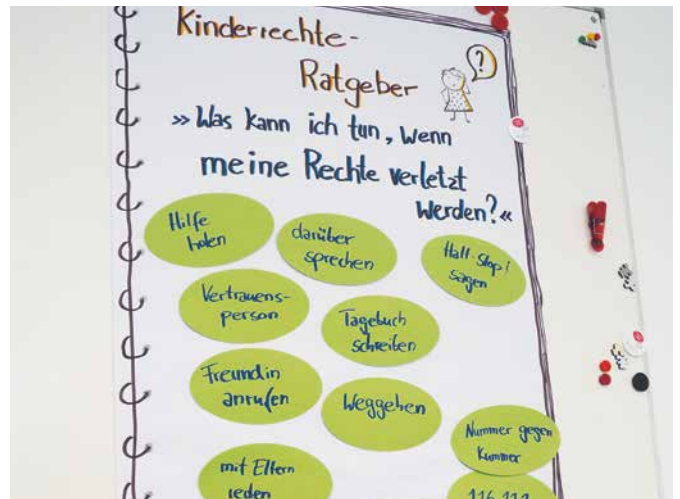 Kinderrechte-
Ratgeber
?
»Was kann ich tun, wenn
meine Rechte verletzt
werden?«
Hilfe
holen
darüber
sprechen
Halt-Stop!
sagen
Vertrauens-
person
Tagebuch
schreiben
Freundin
anrufen
Weggehen
Nummer gegen
Kummer
mit Eltern
reden
116 111